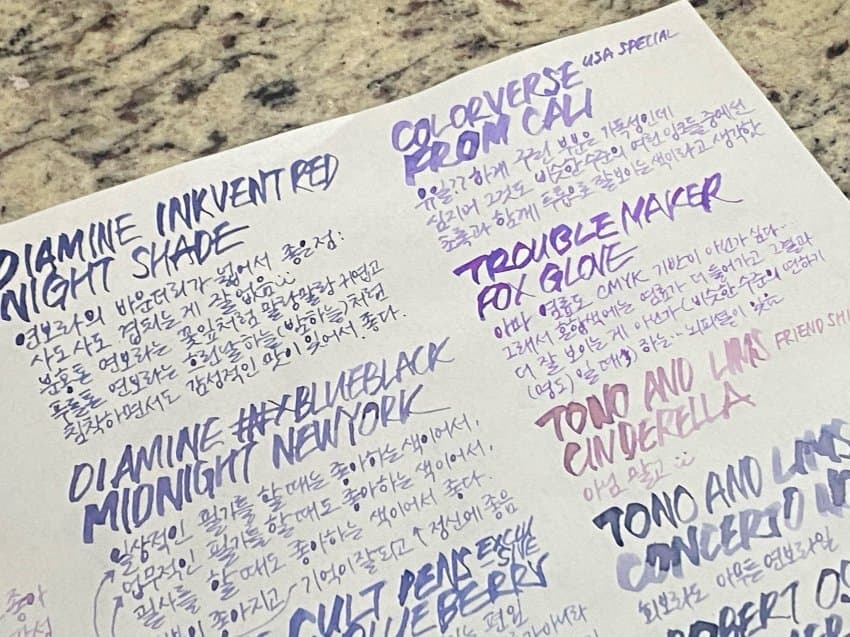 DIAMINE INKVENT RED
NIGHT SHADE
연보라의 바운더리가 넓어서 좋은점:
사도사도 겹치는 게 잘 없음
분홍톤 연보라는 꽃잎처럼 팔랑팔랑 귀엽고
푸른톤 연보라는 흐린날 하늘(밤하늘)처럼
침착하면서도 감성적인 맛이 있어서 좋다.
DIAMINE ##XBLUEBLACK
MIDNIGHT NEWYORK
일상적인 필기를 할 때는 좋아하는 색이어서,
업무적인 필기를 할 때도 좋아하는 색이어서,
필사를 할 때도 좋아하는 색이어서 좋다.
좋아지고 기억이 잘되고 ↑ 정신에 좋음
CULT PENS EXCLU
SIVE
BLUEBERRY
편입
COLORVERSE USA SPECIAL
FROM CALI
유일?? 하게 구린 부분은 가독성인데
심지어 그것도 비슷한 수준의 여린 잉크들 중에선
초록과 함께 투톱으로 잘보이는 색이라고 생각함
TROUBLE MAKER
FOX GLOVE
아마 염료도 CMYK 기반이 아닌가 싶다..
그래서 혼합색에는 염료가 더 들어가고 그결과
더 잘 보이는 게 아닌가(비슷한 수준의 연하기
(명도)일 때) 하는.. 뇌피셜이 있음
TONO AND LIMS FRIENDSHI
CINDERELLA
아님 말고
TONO AND LIMS
CONCERTO
회보라도 아무튼 연보라임
ROBERT OS
좋아
감성